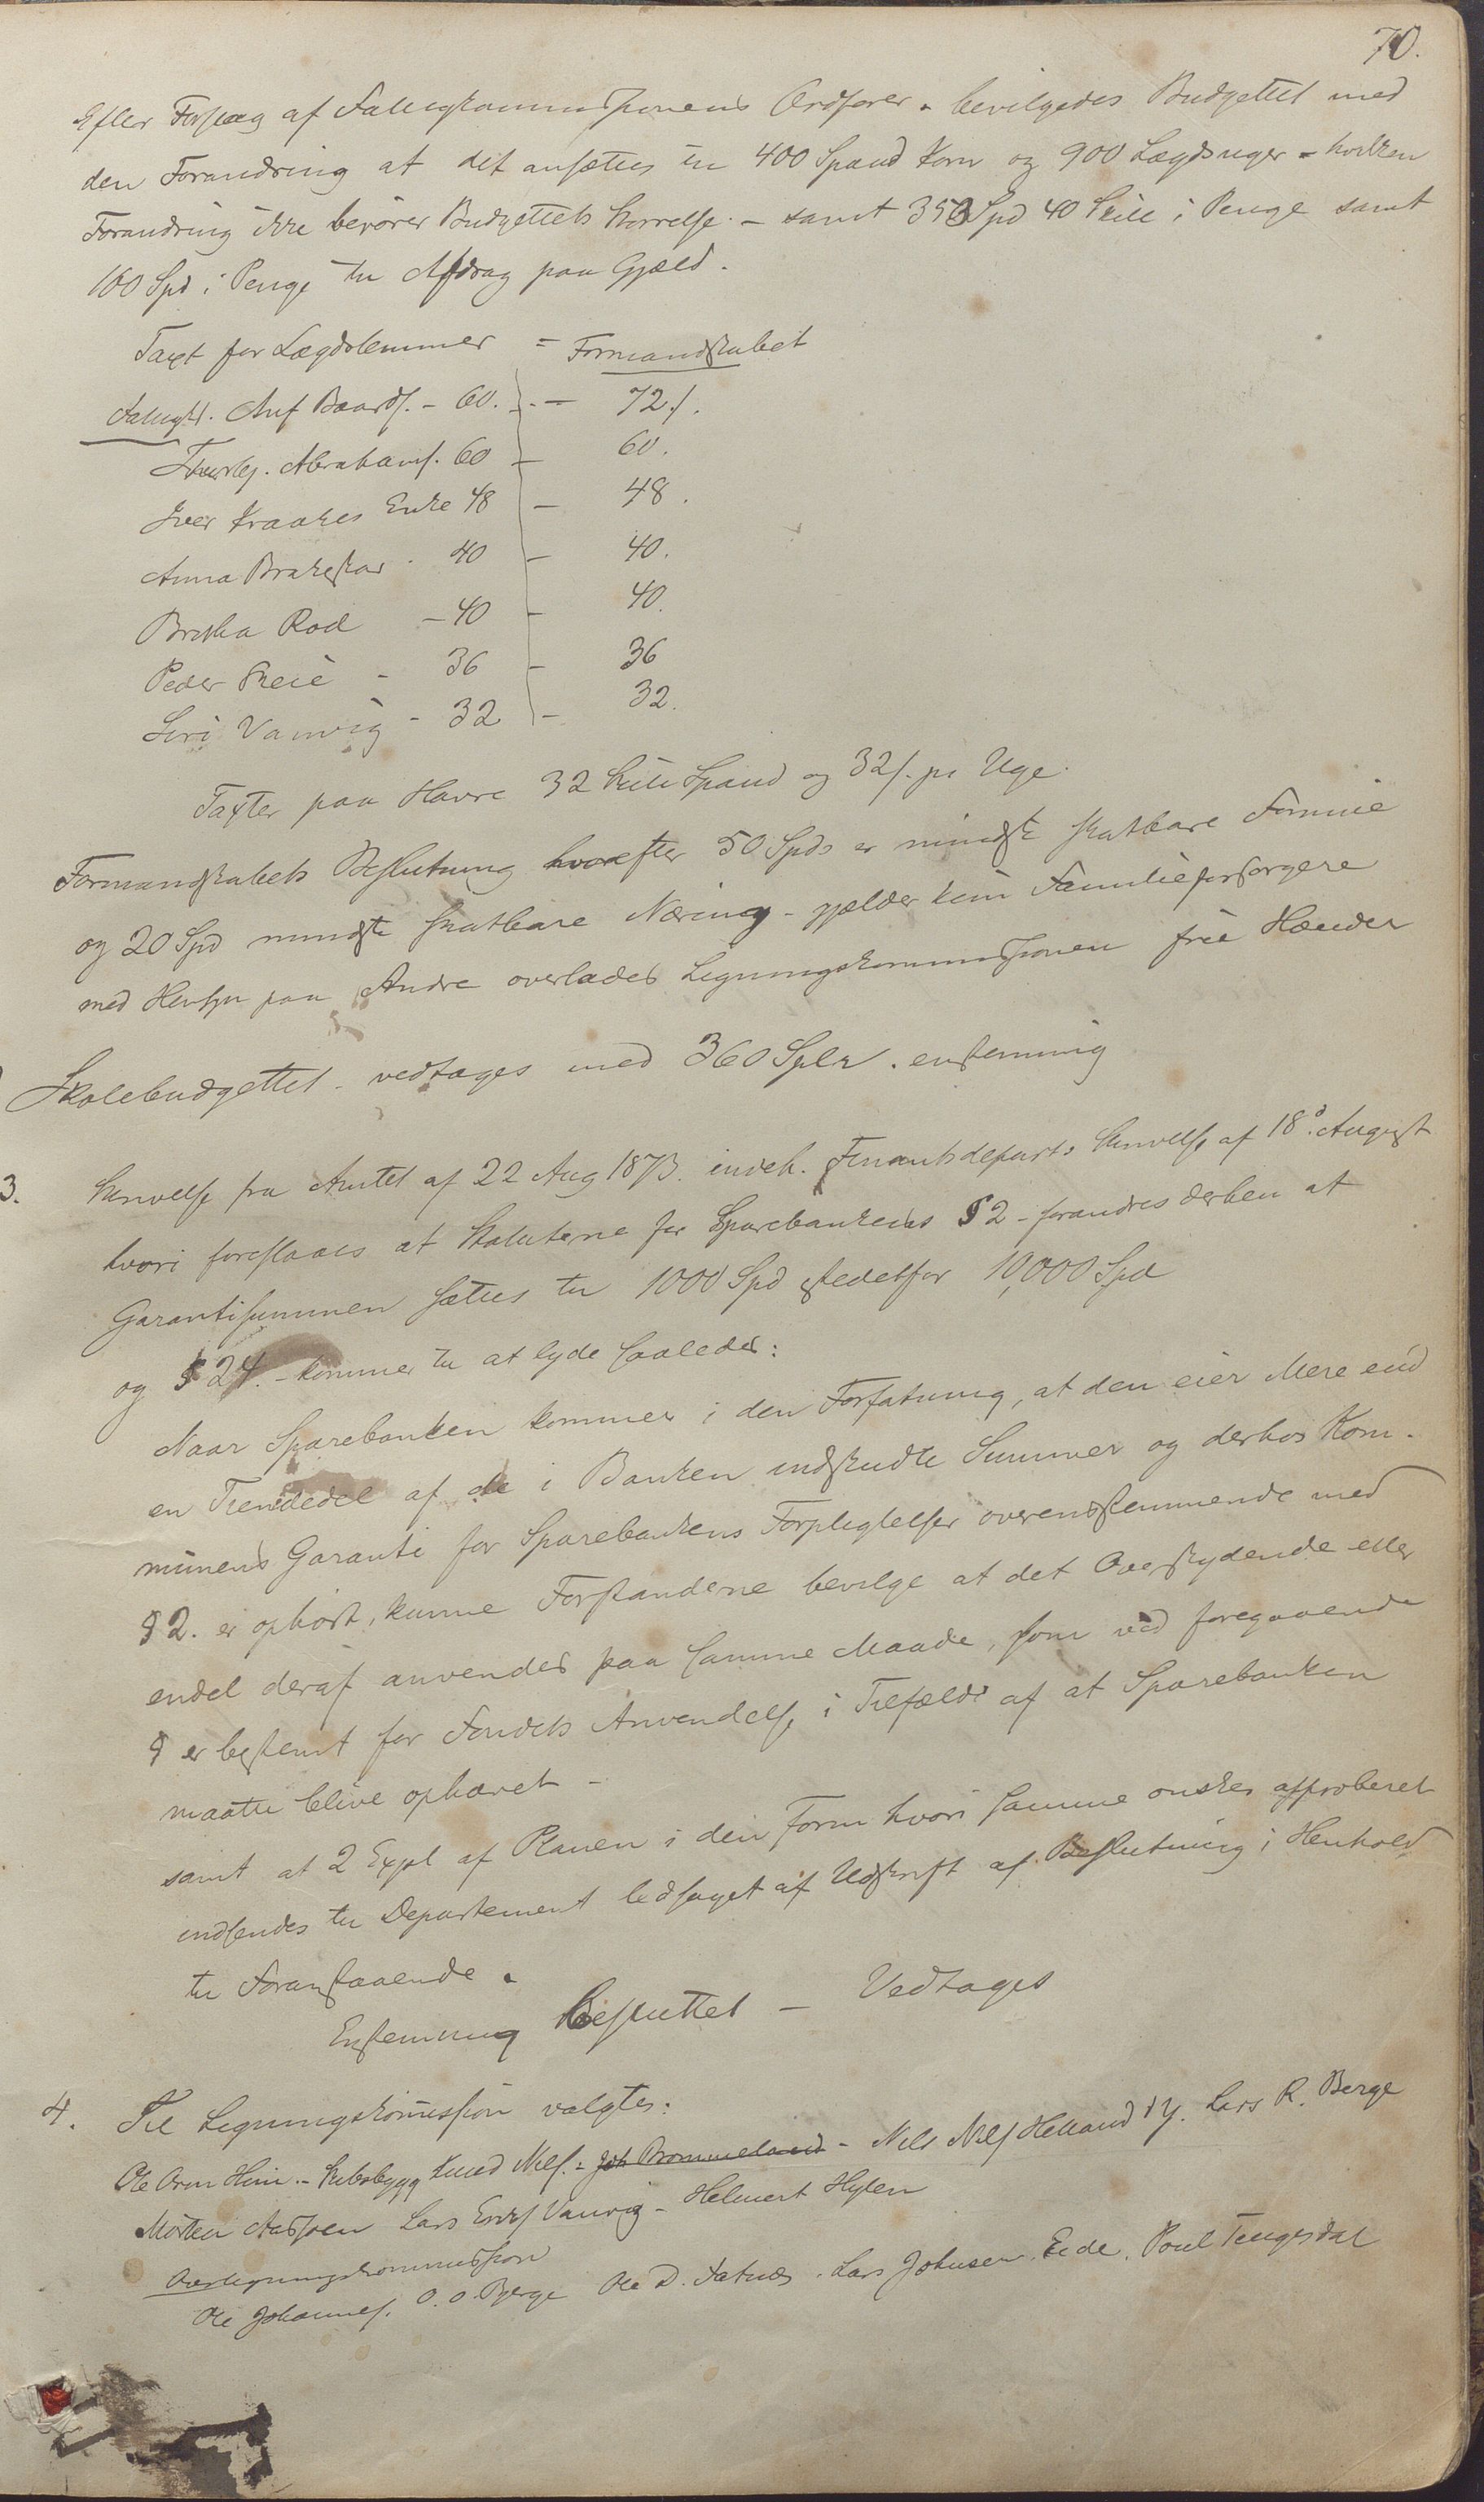 70.
Efter Forslag af Fattigkommissionens Ordfører - bevilgedes Budgettet med
den Forandring at det ansættes til 400 Spand Korn og 900 Lægdsuger - hvilken
Forandring ikke berører Budgettets Størrelse. - samt 353 Spd 40 Skill i Penge samt
160 Spd i Penge til Afdrag paa Gjæld.
Taxt for Lægdslemmer = Formandskabet
Fattigk. Anf Baards. - 60. - 72 s.
Abrahams. 60 - 60.
Iver Kraakes Enke 48 - 48.
Anna Brakestad - 40 - 40.
Britha Rod - 40 - 40.
Peder Skeie - 36 - 36
Siri Vanvig - 32 - 32.
Taxter paa Havre 32 Skill Spand og 32 s. pr Uge.
Formandskabets Beslutning hvorefter 50 Spds er mindste skatbare Formue
og 20 Spd mindste skatbare Næring - gjælder kun Familieforsørgere
med Hensyn paa Andre overlades Ligningskommissionen frie Hænder
Skolebudgettet - vedtages med 360 Splr. enstemmig
3. Skrivelse fra Amtet af 22 Aug 1873. indeh. Finantsdeparts Skrivelse af 18d August
hvori foreslaaes at Statuterne for Sparebankens § 2 - forandres derhen at
Garantisummen sættes til 1000 Spd istedetfor 10,000 Spd
og § 24. - kommer til at lyde saaledes:
Naar Sparebanken kommer i den Forfatning, at den eier Mere end
en Tiendedel af de i Banken indskudte Summer og derhos Kom-
munens Garanti for Sparebankens Forpligtelser overensstemmende med
§ 2. er ophørt, kunne Forstanderne bevilge at det Overskydende eller
endel deraf anvendes paa samme Maade, som ved foregaaende
§ er bestemt for Fondets Anvendelse i Tilfælde af at Sparebanken
maatte blive ophævet -
samt at 2 Expl af Planen i den Form hvori samme ønskes approberet
indsendes til Departement ledsaget af Udskrift af Beslutning i Henhold
til Foranstaaende.
Enstemmig Besluttet - Vedtages
4. Til Ligningskommission valgtes:
Ole Orm Heim. - Knud Nils. - Joh Brommeland - Nils Nilss Helland Lars R. Berge
Morten Lars Vanvig - Helmert Hylen
Overligningskommission
Ole Johannes. O. O. Berge Ole D. Lars Johnsen Eide. Poul Tengesdal